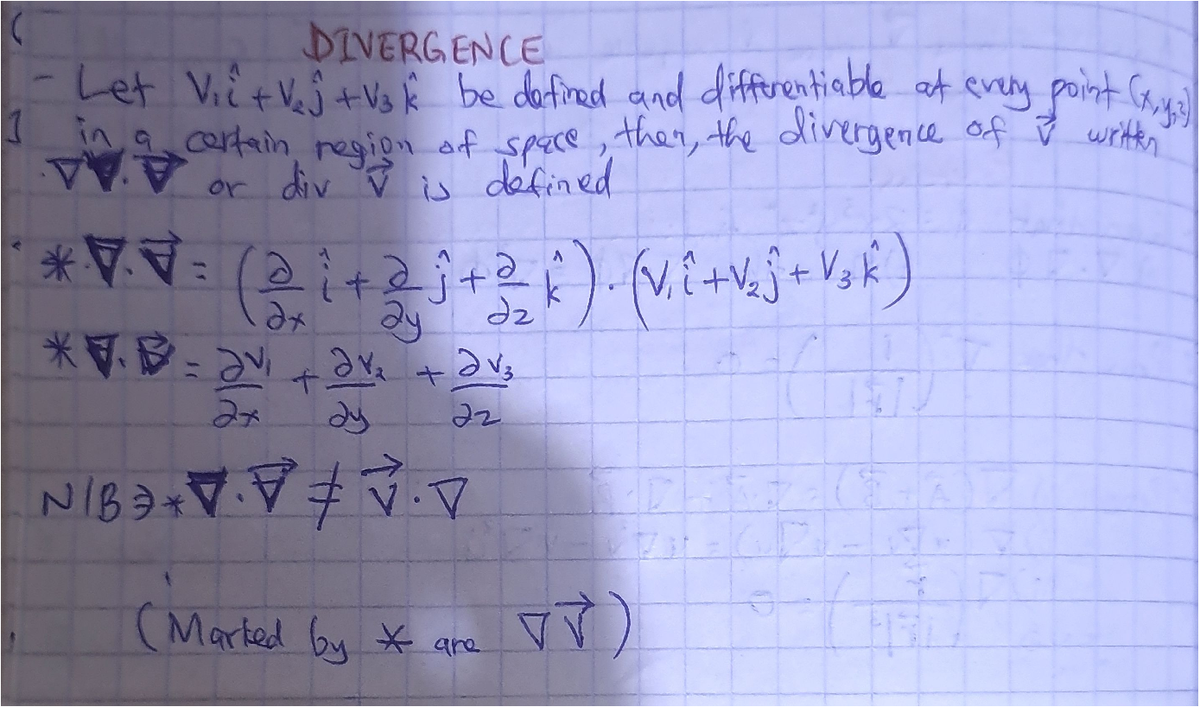 DIVERGENCE
- Let V₁î + V₂ĵ + V₃k̂ be defined and differentiable at every point (x,y,z)
in a certain region of space, then, the divergence of V⃗ written
∇ · V⃗ or div V⃗ is defined
* ∇ · V⃗ = (∂/∂x î + ∂/∂y ĵ + ∂/∂z k̂) · (V₁î + V₂ĵ + V₃k̂)
* ∇ · V⃗ = ∂V₁/∂x + ∂V₂/∂y + ∂V₃/∂z
N/B∋ * ∇ · V⃗ ≠ V⃗ · ∇
(Marked by * are ∇V⃗)